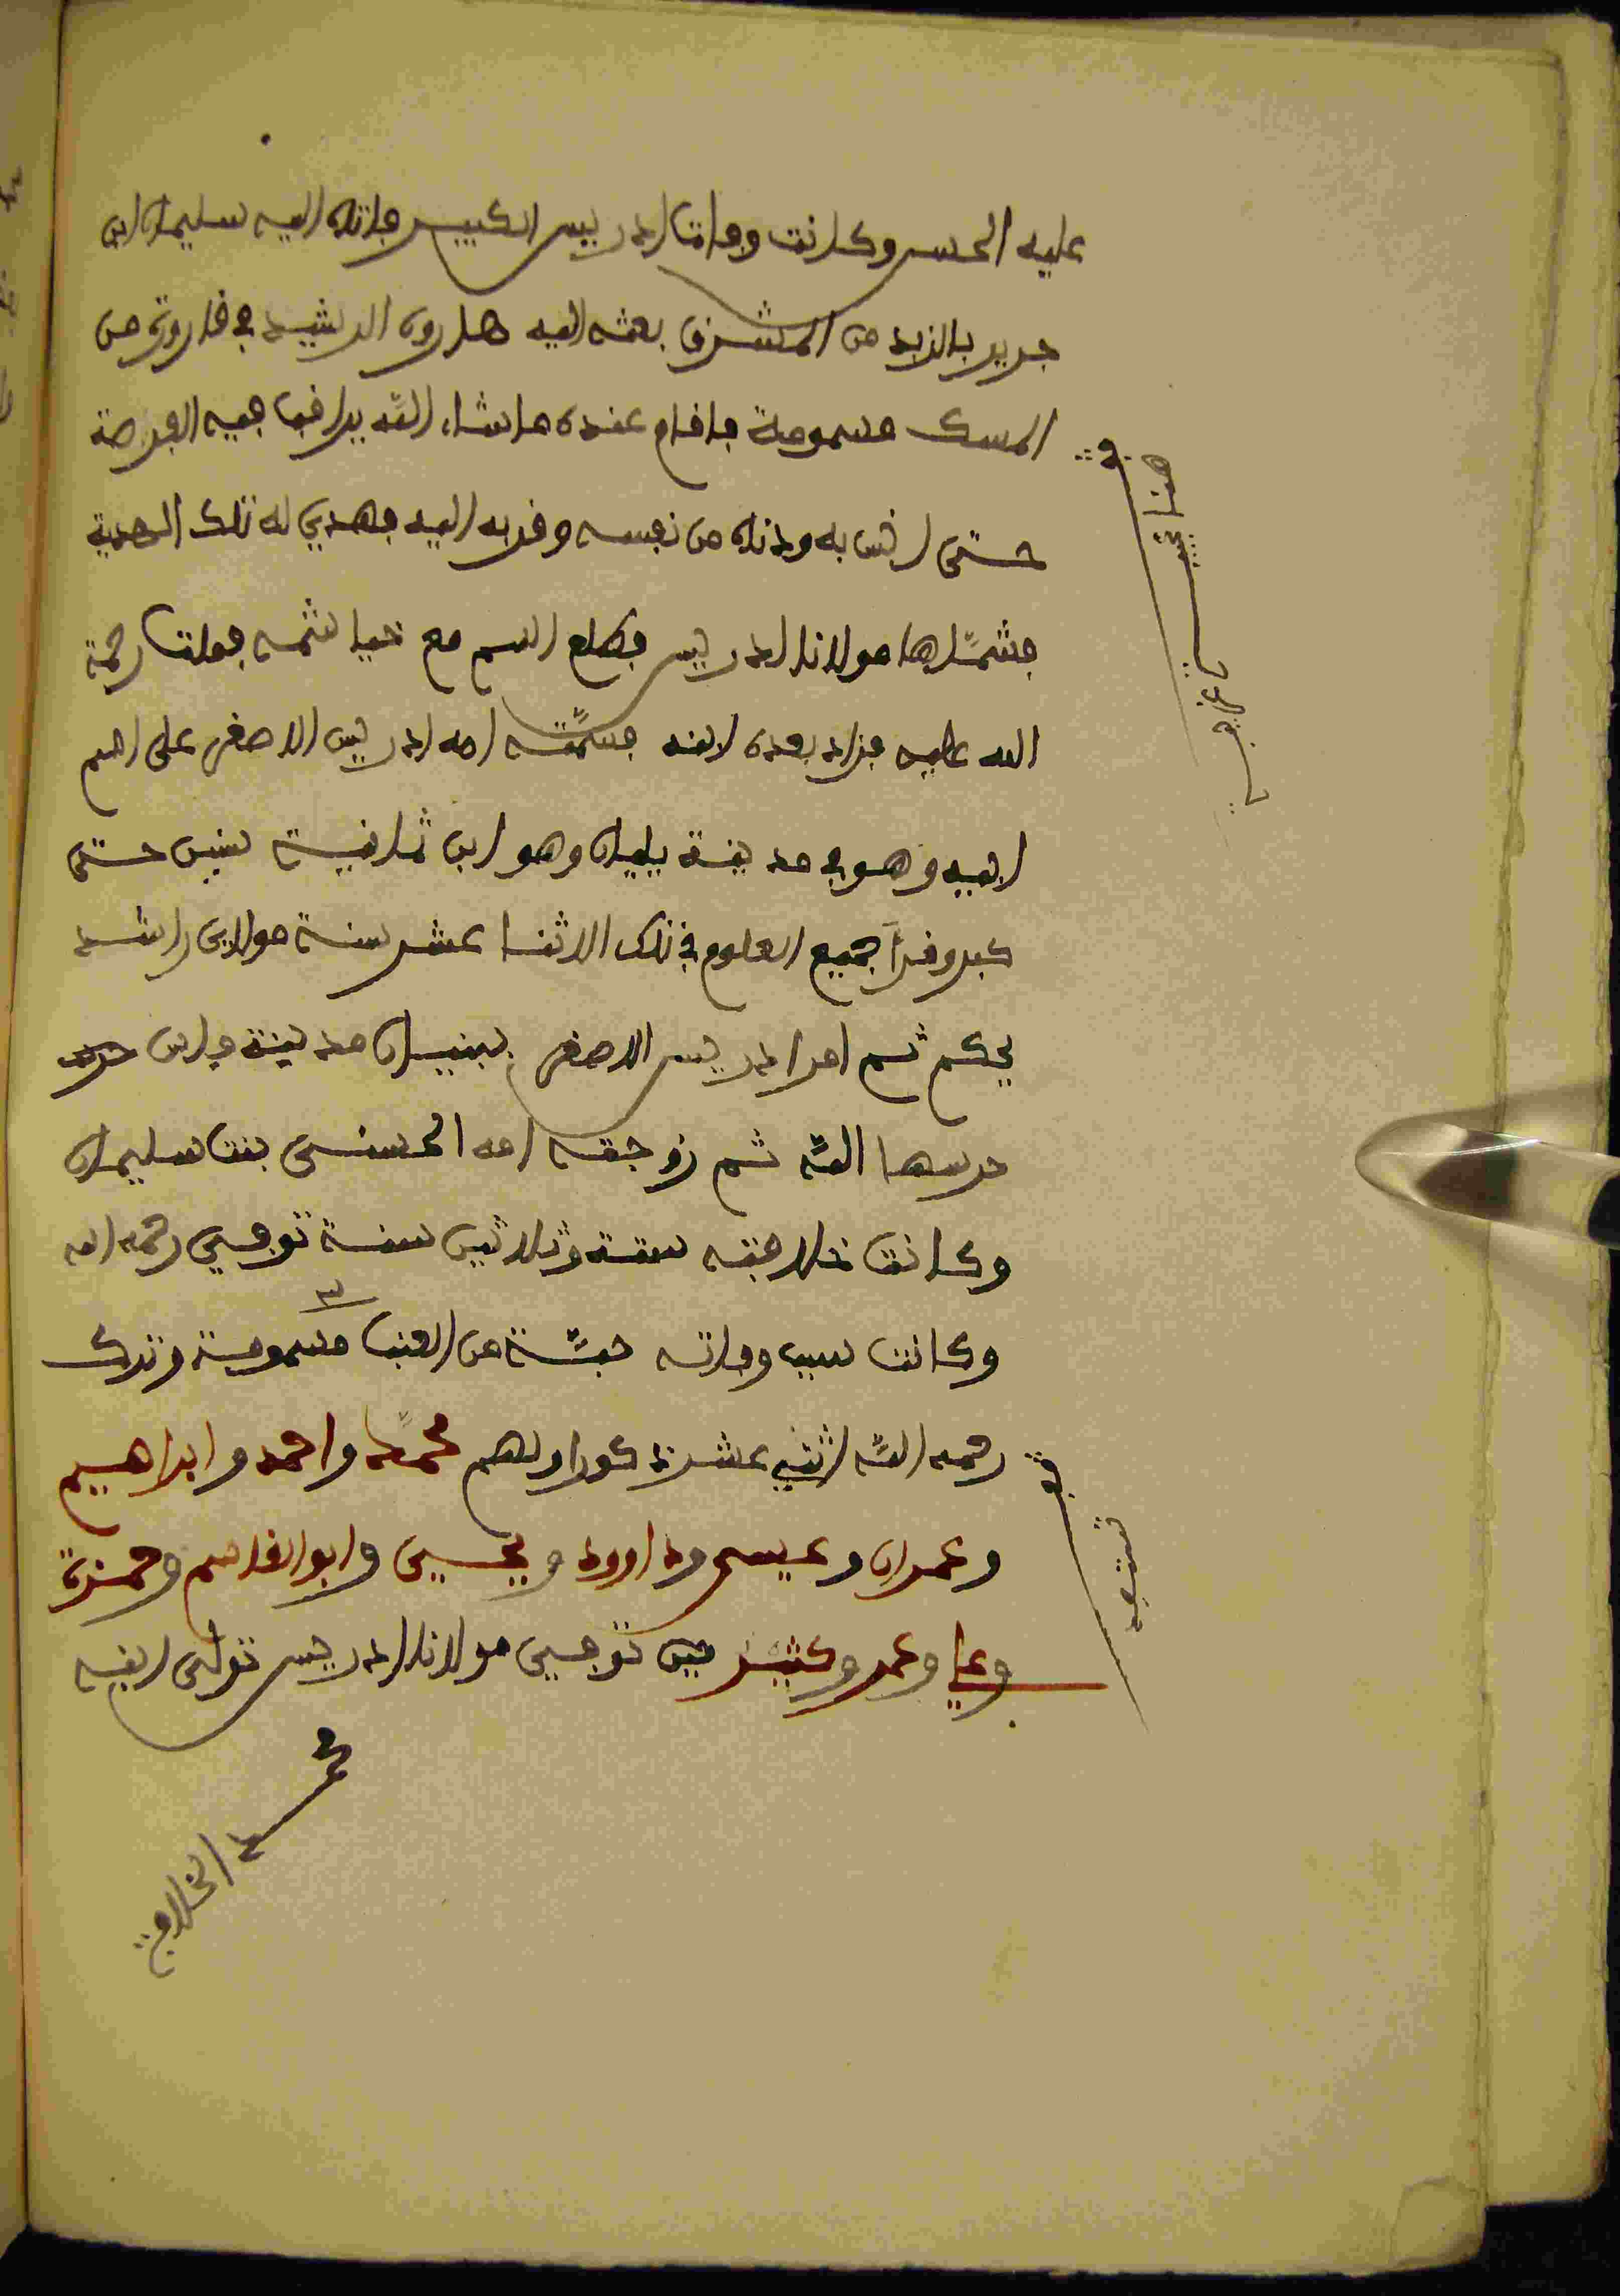 عليه الحسن وكانت وفات ادريس الكبير فاتاه اليه سليمان ابن
جرير بالزيد من المشرق بعثه اليه هارون الرشيد في قارورة من
المسك مسمومة فاقام عنده ماشاء الله يراقب فيه الفرصة
حتى انس به ودناه من نفسه وقربه اليه فهدي له تلك الهدية
فشمّها مولانا ادريس فطلع السم مع خياشمه فمات رحمة
الله عليه فزاد بعده ابنه فسمّته امه ادريس الاصغر على اسم
ابيه وهو في مدينة يليلان وهو ابن ثمانية سنين حتى
كبر وقرأ جميع العلوم في تلك الاثنا عشر سنة مولاي راشد
يحكم ثم امر ادريس الاصغر ببنيان مدينة فاس
حرسها الله ثم زوجته امه الحسنى بنت سليمان
وكانت خلافته ستة وثلاثين سنة توفي رحمه الله
وكانت سبب وفاته حبّة من العنب مسمومة وترك
رحمه الله اثني عشر ذكورا ولهم محمّد واحمد وابراهيم
وعمران وعيسى وداوود ويحيى وابو القاسم وحمزة
وعلي وعمر وكثير حين توفي مولانا ادريس تولى ابنه
محمد الخلافة